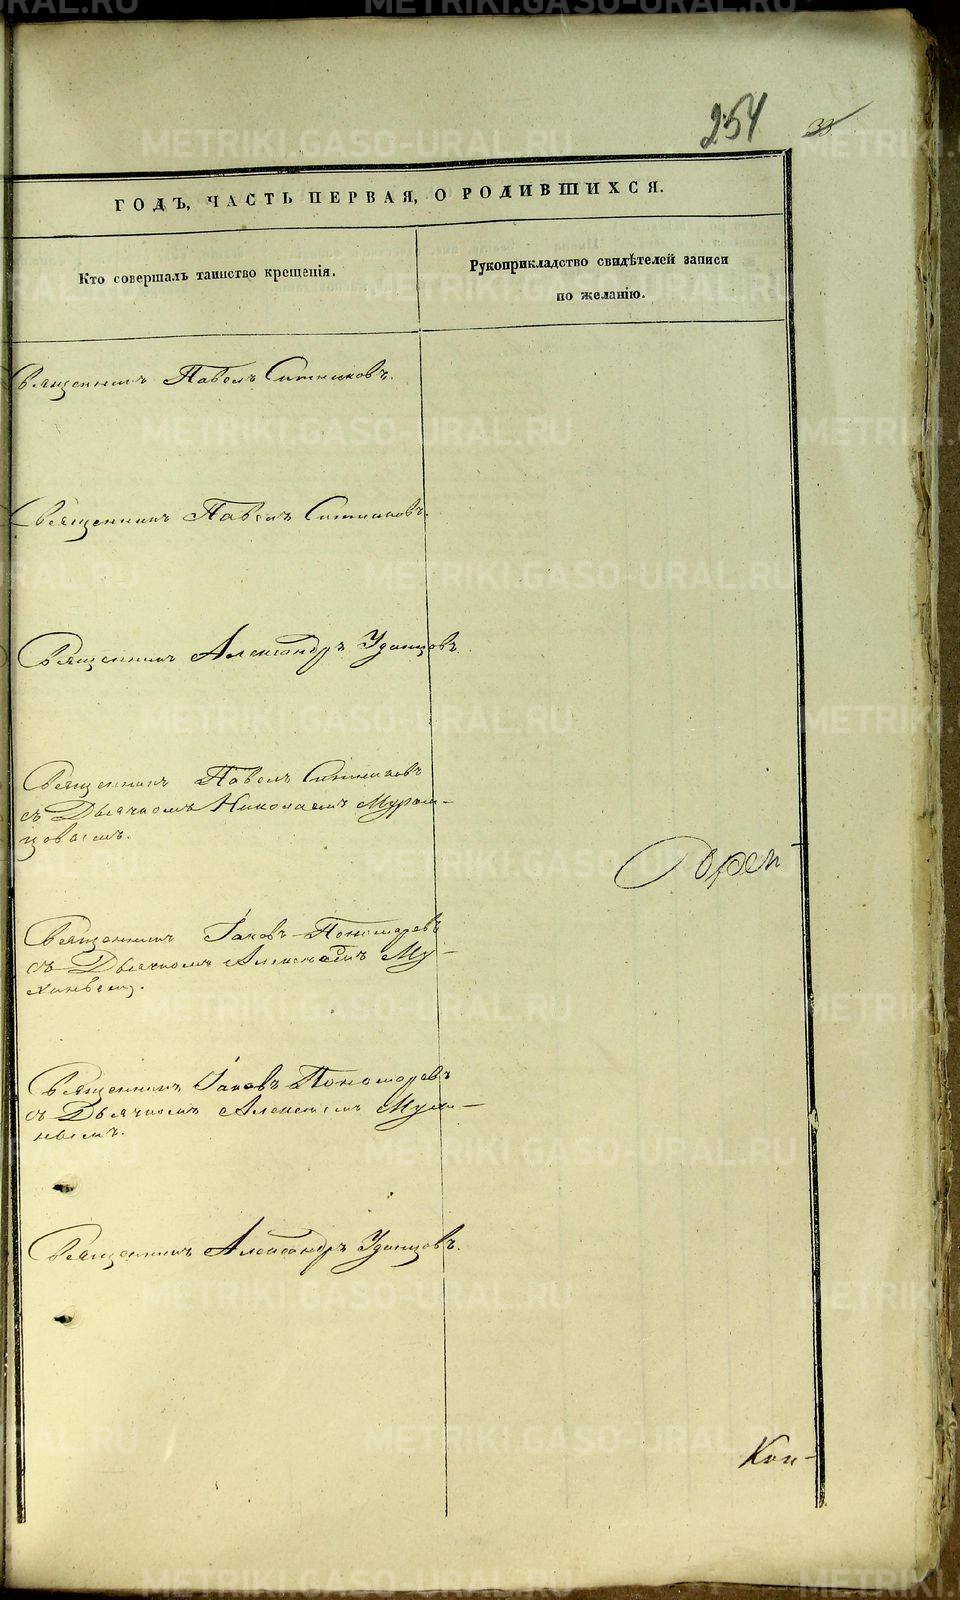 254
33
ГОДЪ, ЧАСТЬ ПЕРВАЯ, О РОДИВШИХСЯ.
Кто совершалъ таинство крещенія.
Рукоприкладство свидѣтелей записи
по желанію.
Священникъ Павелъ Ситниковъ.
Священникъ Павелъ Ситниковъ.
Священникъ Александръ Удинцовъ.
Священникъ Павелъ Ситниковъ
съ Дьячкомъ Николаемъ Мурзин-
цовымъ.
Священникъ Іаковъ Пономаревъ
съ Дьячкомъ Алексѣемъ Му-
хинымъ.
Священникъ Іаковъ Пономаревъ
съ Дьячкомъ Алексѣемъ Мухи-
нымъ.
Священникъ Александръ Удинцовъ.
Кон-
METRIKI.GASO-URAL.RU